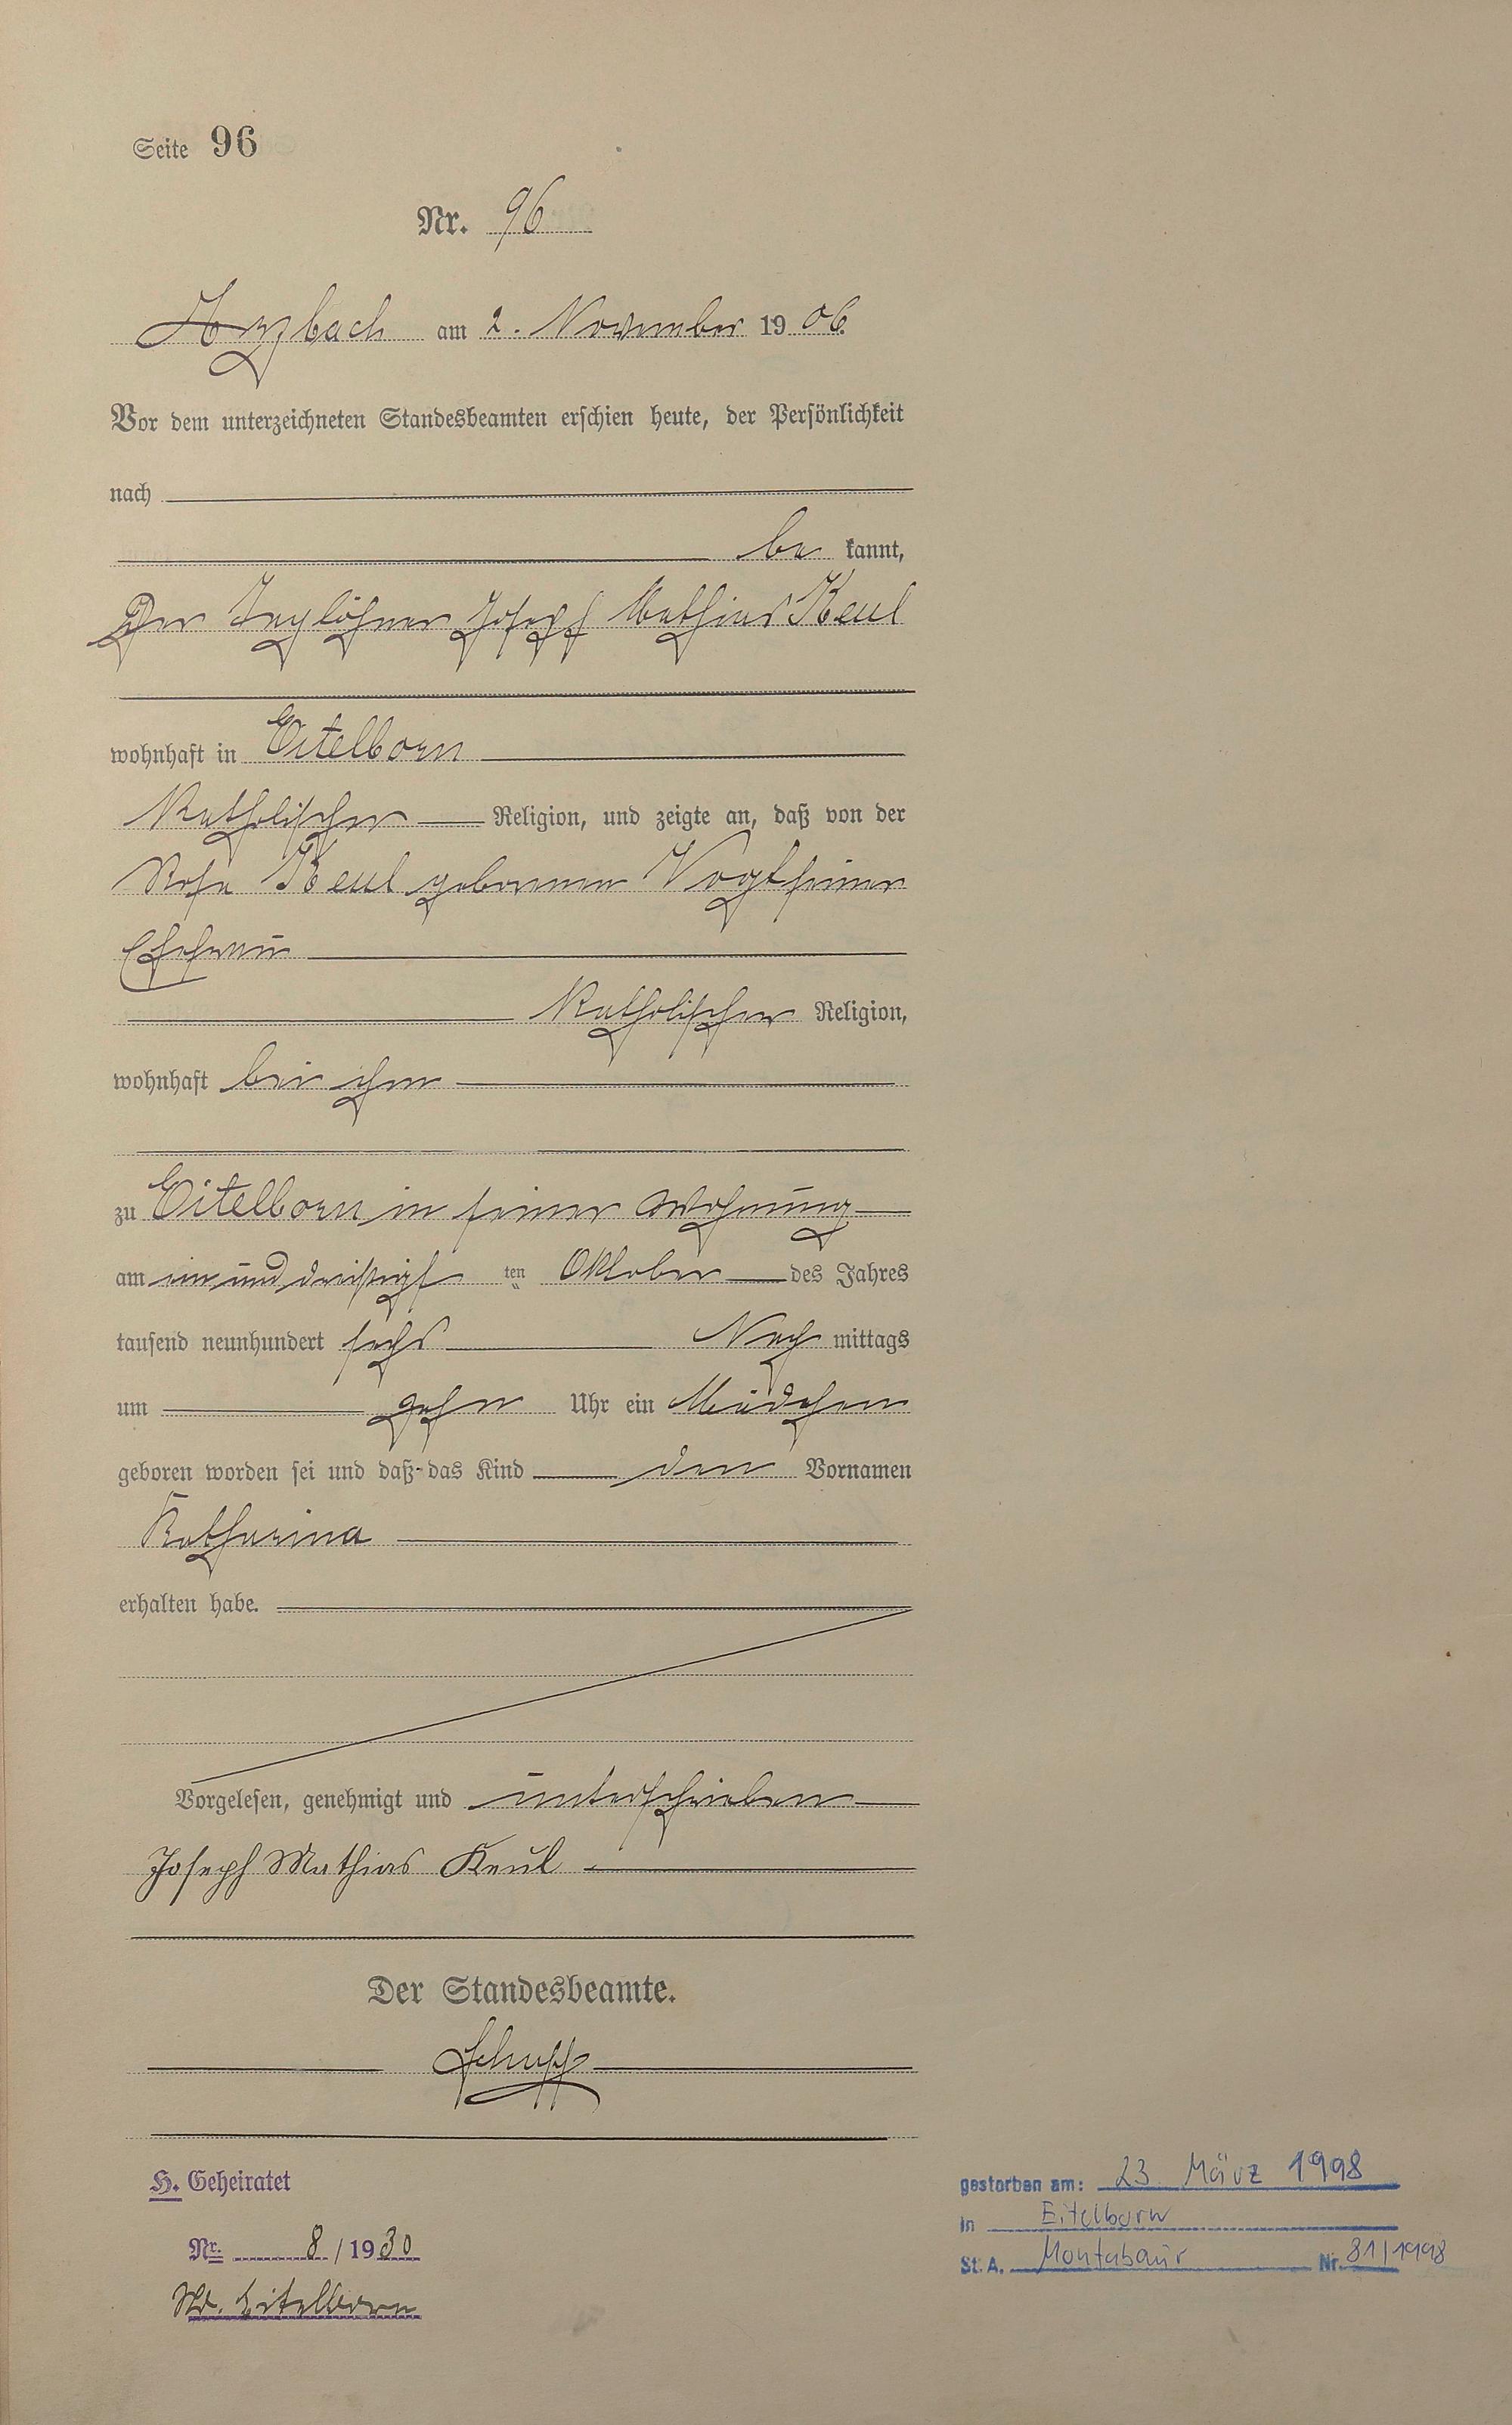 Seite 96
Nr. 96
Arzbach am 2. November 1906.
Vor dem unterzeichneten Standesbeamten erschien heute, der Persönlichkeit
nach
be kannt,
Der Taglöhner Josef Mathias Keul
wohnhaft in Eitelborn
Katholischer Religion, und zeigte an, daß von der
Rosa Keul geborenen Vogt seiner
Ehefrau
Katholischer Religion,
wohnhaft bei ihm
zu Eitelborn in seiner Wohnung
am ein und dreißigsten Oktober des Jahres
tausend neunhundert sechs Nach mittags
um zehn Uhr ein Mädchen
geboren worden sei und daß das Kind den Vornamen
Katharina
erhalten habe.
Vorgelesen, genehmigt und unterschrieben
Joseph Mathias Keul
Der Standesbeamte.
Schupp
H. Geheiratet
Nr. 8/1930
Eitelborn
gestorben am: 23. März 1998
in Eitelborn
St. A. Montabaur Nr. 81/1998